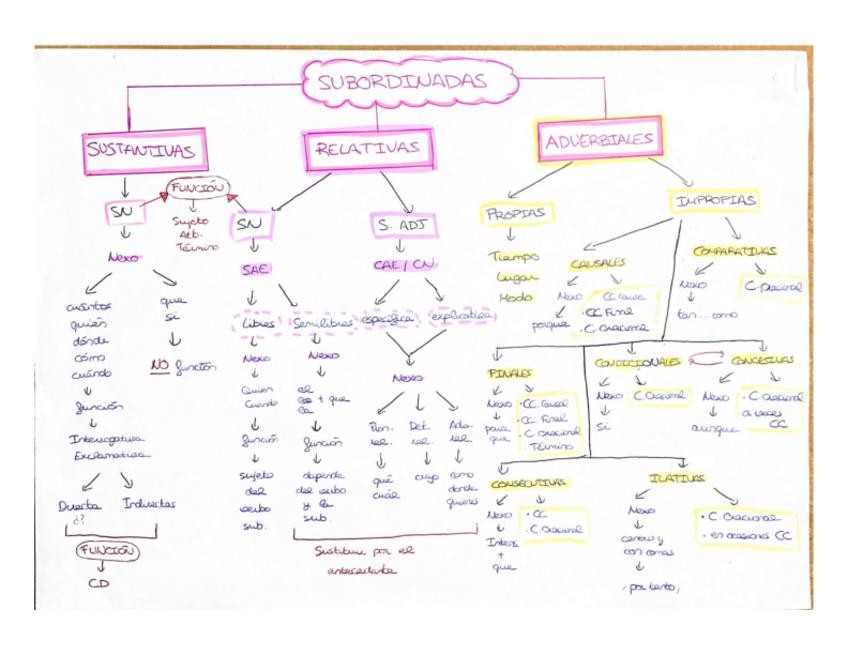 SUBORDINADAS
SUSTANTIVAS
RELATIVAS
ADVERBIALES
SN
FUNCIÓN
Sujeto
Atb.
Término
Nexo
cuántos
quién
dónde
cómo
cuándo
función
Interrogativa
Exclamativa
Directa
¿?
Indirectas
FUNCIÓN
CD
que
si
NO función
SN
SAE
Libres
Semilibres
Nexo
Quien
Cuando
función
sujeto
del
verbo
sub.
Nexo
el
los + que
la
función
depende
del verbo
y la
sub.
S. ADJ
CAE / CN
específica
explicativa
Nexo
Pron.
rel.
qué
cuál
Det.
rel.
cuyo
Adv.
rel.
como
donde
quienes
Sustituir por el
antecedente
PROPIAS
Tiempo
Lugar
Modo
IMPROPIAS
CAUSALES
Nexo
porque
CC Causa
· CC Final
· C. Oracional
COMPARATIVAS
Nexo
tan... como
C. Oracional
FINALES
Nexo
para
que
· CC. Causal
· CC. Final
· C. Oracional
· Término
CONDICIONALES
Nexo
Si
C. Oracional
CONCESIVAS
Nexo
aunque
· C Oracional
a veces
CC
CONSECUTIVAS
Nexo
Intens
+
que
· CC
· C. Oracional
ILATIVAS
Nexo
centro y
con comas
, por tanto,
· C. Oracional
· en ocasiones CC